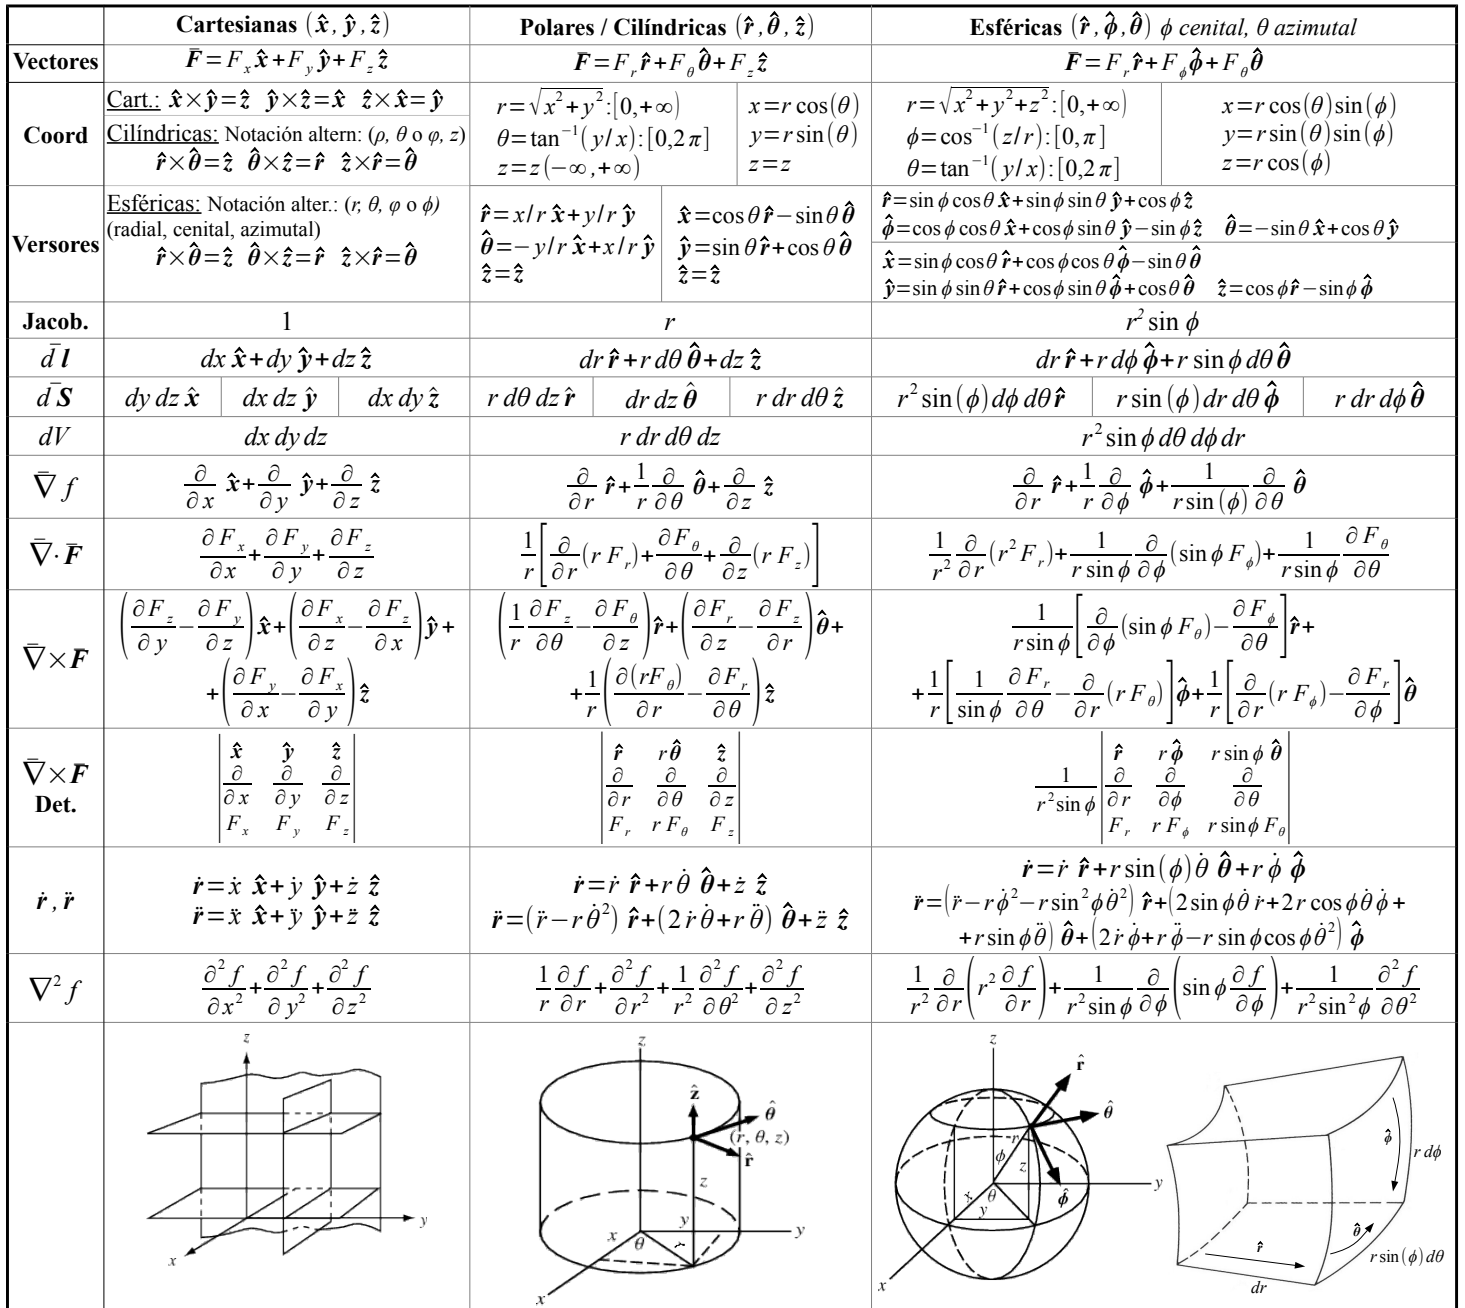 Cartesianas (x̂, ŷ, ẑ)
Polares / Cilíndricas (r̂, θ̂, ẑ)
Esféricas (r̂, ϕ̂, θ̂) ϕ cenital, θ azimutal
Vectores
F̄=F_x x̂+F_y ŷ+F_z ẑ
F̄=F_r r̂+F_θ θ̂+F_z ẑ
F̄=F_r r̂+F_ϕ ϕ̂+F_θ θ̂
Coord
Cart.: x̂×ŷ=ẑ ŷ×ẑ=x̂ ẑ×x̂=ŷ
Cilíndricas: Notación altern: (ρ, θ o φ, z)
r̂×θ̂=ẑ θ̂×ẑ=r̂ ẑ×r̂=θ̂
r=√(x²+y²):[0,+∞)
θ=tan⁻¹(y/x):[0,2π]
z=z(−∞,+∞)
x=r cos(θ)
y=r sin(θ)
z=z
r=√(x²+y²+z²):[0,+∞)
ϕ=cos⁻¹(z/r):[0,π]
θ=tan⁻¹(y/x):[0,2π]
x=r cos(θ)sin(ϕ)
y=r sin(θ)sin(ϕ)
z=r cos(ϕ)
Versores
Esféricas: Notación alter.: (r, θ, φ o ϕ)
(radial, cenital, azimutal)
r̂×θ̂=ẑ θ̂×ẑ=r̂ ẑ×r̂=θ̂
r̂=x/r x̂+y/r ŷ
θ̂=−y/r x̂+x/r ŷ
ẑ=ẑ
x̂=cosθ r̂−sinθ θ̂
ŷ=sinθ r̂+cosθ θ̂
ẑ=ẑ
r̂=sinϕ cosθ x̂+sinϕ sinθ ŷ+cosϕ ẑ
ϕ̂=cosϕ cosθ x̂+cosϕ sinθ ŷ−sinϕ ẑ θ̂=−sinθ x̂+cosθ ŷ
x̂=sinϕ cosθ r̂+cosϕ cosθ ϕ̂−sinθ θ̂
ŷ=sinϕ sinθ r̂+cosϕ sinθ ϕ̂+cosθ θ̂ ẑ=cosϕ r̂−sinϕ ϕ̂
Jacob.
1
r
r² sin ϕ
d̄l
dx x̂+dy ŷ+dz ẑ
dr r̂+r dθ θ̂+dz ẑ
dr r̂+r dϕ ϕ̂+r sin ϕ dθ θ̂
d̄S
dy dz x̂
dx dz ŷ
dx dy ẑ
r dθ dz r̂
dr dz θ̂
r dr dθ ẑ
r² sin(ϕ)dϕ dθ r̂
r sin(ϕ)dr dθ ϕ̂
r dr dϕ θ̂
dV
dx dy dz
r dr dθ dz
r² sin ϕ dθ dϕ dr
∇̄ f
∂/∂x x̂+∂/∂y ŷ+∂/∂z ẑ
∂/∂r r̂+1/r ∂/∂θ θ̂+∂/∂z ẑ
∂/∂r r̂+1/r ∂/∂ϕ ϕ̂+1/(r sin(ϕ)) ∂/∂θ θ̂
∇̄·F̄
∂F_x/∂x+∂F_y/∂y+∂F_z/∂z
1/r[∂/∂r(r F_r)+∂F_θ/∂θ+∂/∂z(r F_z)]
1/r² ∂/∂r(r² F_r)+1/(r sinϕ) ∂/∂ϕ(sinϕ F_ϕ)+1/(r sinϕ) ∂F_θ/∂θ
∇̄×F̄
(∂F_z/∂y−∂F_y/∂z)x̂+(∂F_x/∂z−∂F_z/∂x)ŷ+
+(∂F_y/∂x−∂F_x/∂y)ẑ
(1/r ∂F_z/∂θ−∂F_θ/∂z)r̂+(∂F_r/∂z−∂F_z/∂r)θ̂+
+1/r(∂(rF_θ)/∂r−∂F_r/∂θ)ẑ
1/(r sinϕ)[∂/∂ϕ(sinϕ F_θ)−∂F_ϕ/∂θ]r̂+
+1/r[1/sinϕ ∂F_r/∂θ−∂/∂r(r F_θ)]ϕ̂+1/r[∂/∂r(r F_ϕ)−∂F_r/∂ϕ]θ̂
∇̄×F̄
Det.
| x̂ ŷ ẑ |
| ∂/∂x ∂/∂y ∂/∂z |
| F_x F_y F_z |
| r̂ rθ̂ ẑ |
| ∂/∂r ∂/∂θ ∂/∂z |
| F_r r F_θ F_z |
1/(r² sinϕ)
| r̂ r ϕ̂ r sinϕ θ̂ |
| ∂/∂r ∂/∂ϕ ∂/∂θ |
| F_r r F_ϕ r sinϕ F_θ |
ṙ, r̈
ṙ=ẋ x̂+ẏ ŷ+ż ẑ
r̈=ẍ x̂+ÿ ŷ+z̈ ẑ
ṙ=ṙ r̂+r θ̇ θ̂+ż ẑ
r̈=(r̈−r θ̇²) r̂+(2 ṙ θ̇+r θ̈) θ̂+z̈ ẑ
ṙ=ṙ r̂+r sin(ϕ)θ̇ θ̂+r ϕ̇ ϕ̂
r̈=(r̈−r ϕ̇²−r sin²ϕ θ̇²) r̂+(2 sinϕ θ̇ ṙ+2 r cosϕ θ̇ ϕ̇+
+r sinϕ θ̈) θ̂+(2 ṙ ϕ̇+r ϕ̈−r sinϕ cosϕ θ̇²) ϕ̂
∇² f
∂²f/∂x²+∂²f/∂y²+∂²f/∂z²
1/r ∂f/∂r+∂²f/∂r²+1/r² ∂²f/∂θ²+∂²f/∂z²
1/r² ∂/∂r(r² ∂f/∂r)+1/(r² sinϕ) ∂/∂ϕ(sinϕ ∂f/∂ϕ)+1/(r² sin²ϕ) ∂²f/∂θ²
z
y
x
z
ẑ
θ̂
(r, θ, z)
r̂
z
x
y
θ
r
y
x
z
r̂
θ̂
r
ϕ
z
x
θ
y
ϕ̂
y
x
ϕ̂
r dϕ
θ̂
r̂
r sin(ϕ)dθ
dr